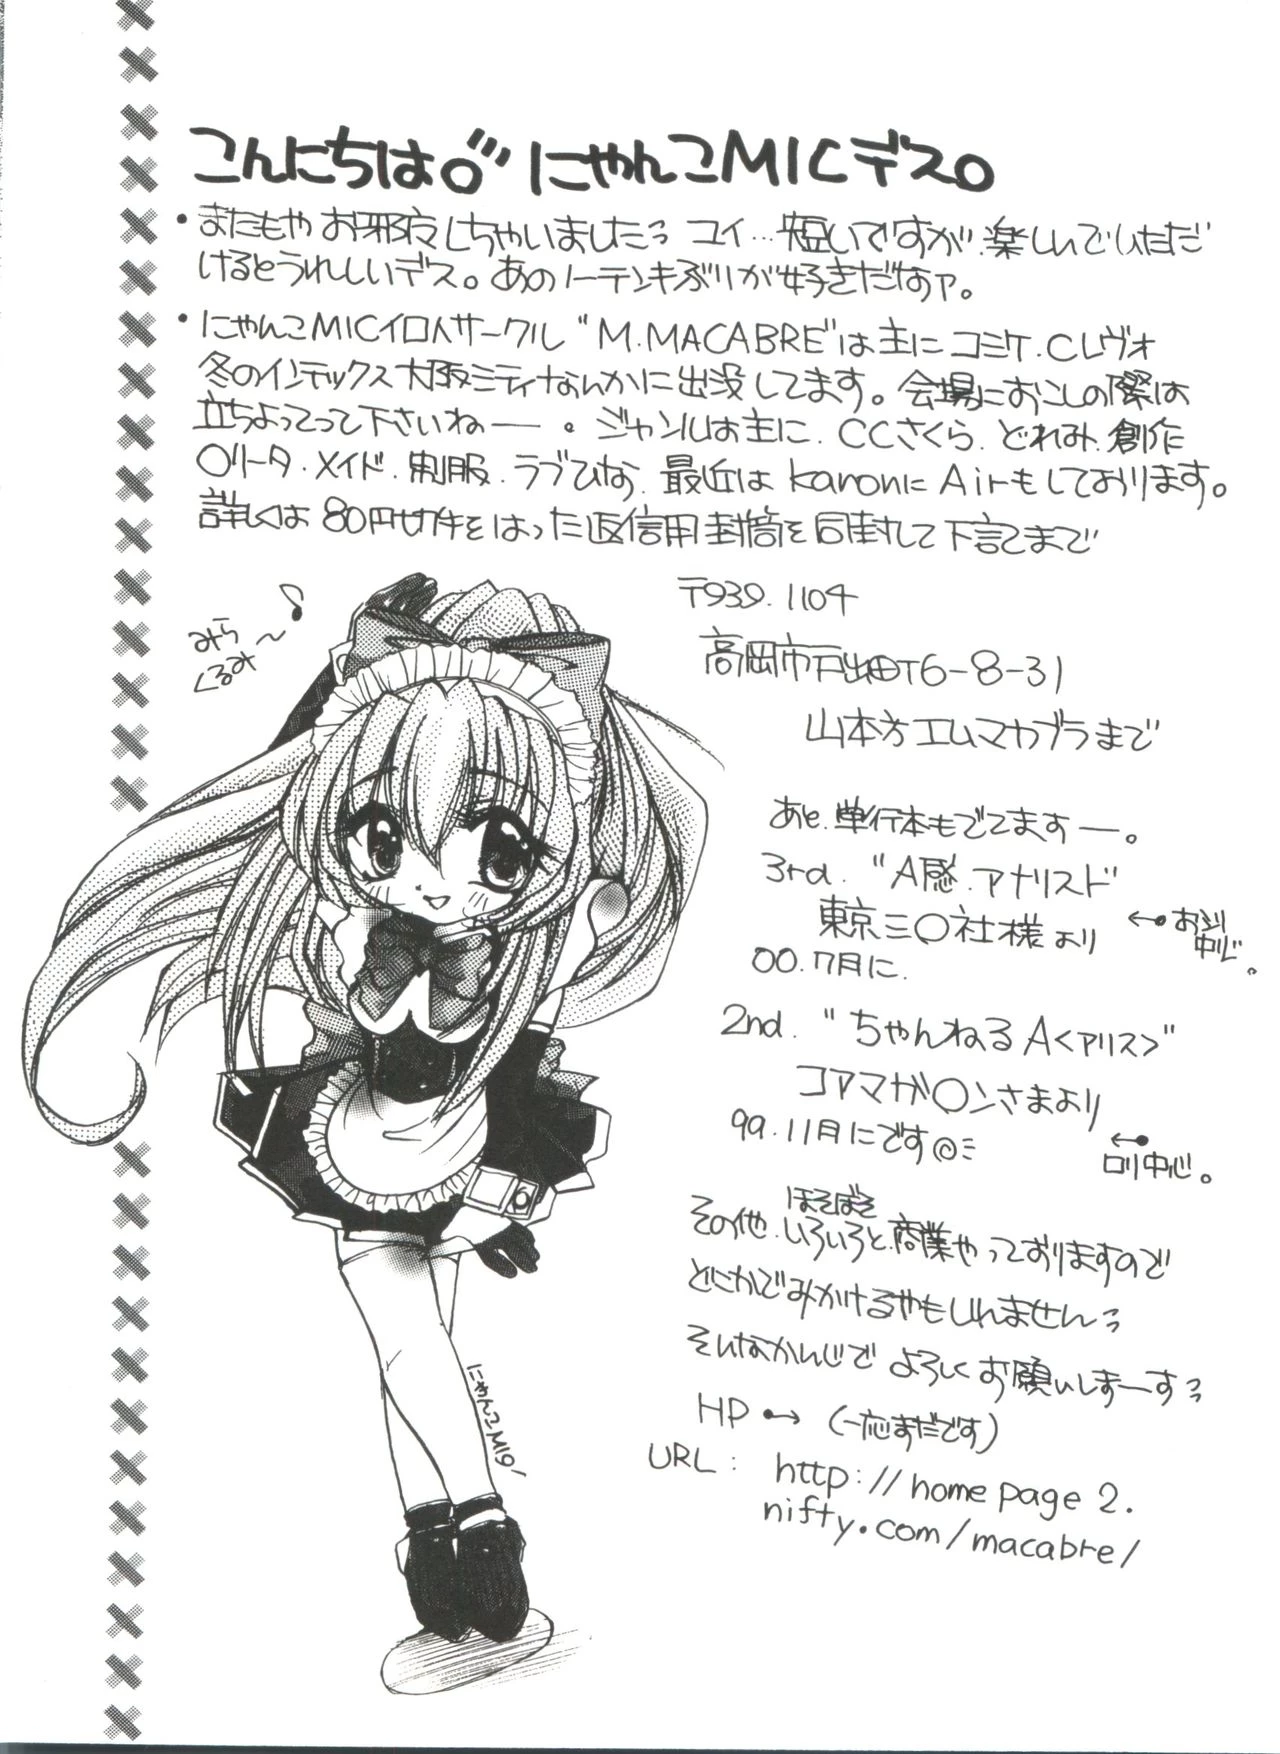 こんにちは○゛ にゃんこMICデス。
・またもやお邪魔しちゃいましたっ コイ…短いですが楽しんでいただ
けるとうれしいデス。あのノーテンキぶりが好きだなァ。
・にゃんこMIC個人サークル "M.MACABRE"は主に コミケ.Cレヴォ
冬のインテックス大阪シティなんかに出没してます。会場におこしの際は
立ちよってって下さいねー。ジャンルは主に.CCさくら.どれみ.創作
○リータ.メイド.制服.ラブひな.最近はkanonにAirもしております。
詳しくは80円切手をはった返信用封筒を同封して下記まで
〒939.1104
高岡市戸出町6-8-31
山本方エムマカブラまで
みら
くるみ〜♪
あと.単行本もでてますー。
3rd. "A感.アナリスト"
東京三○社様より
←お尻
中心。
00.7月に.
2nd. "ちゃんねるA<アリス>"
コアマガ○ンさまより
99.11月にです@
←ロリ中心。
ほそぼそ
その他.いろいろと.商業やっておりますので
どこかでみかけるやもしれませんっ
そんなかんじで よろしくお願いしまーすっ
HP → (一応まだです)
URL: http://homepage2.
nifty.com/macabre/
にゃんこMIC!